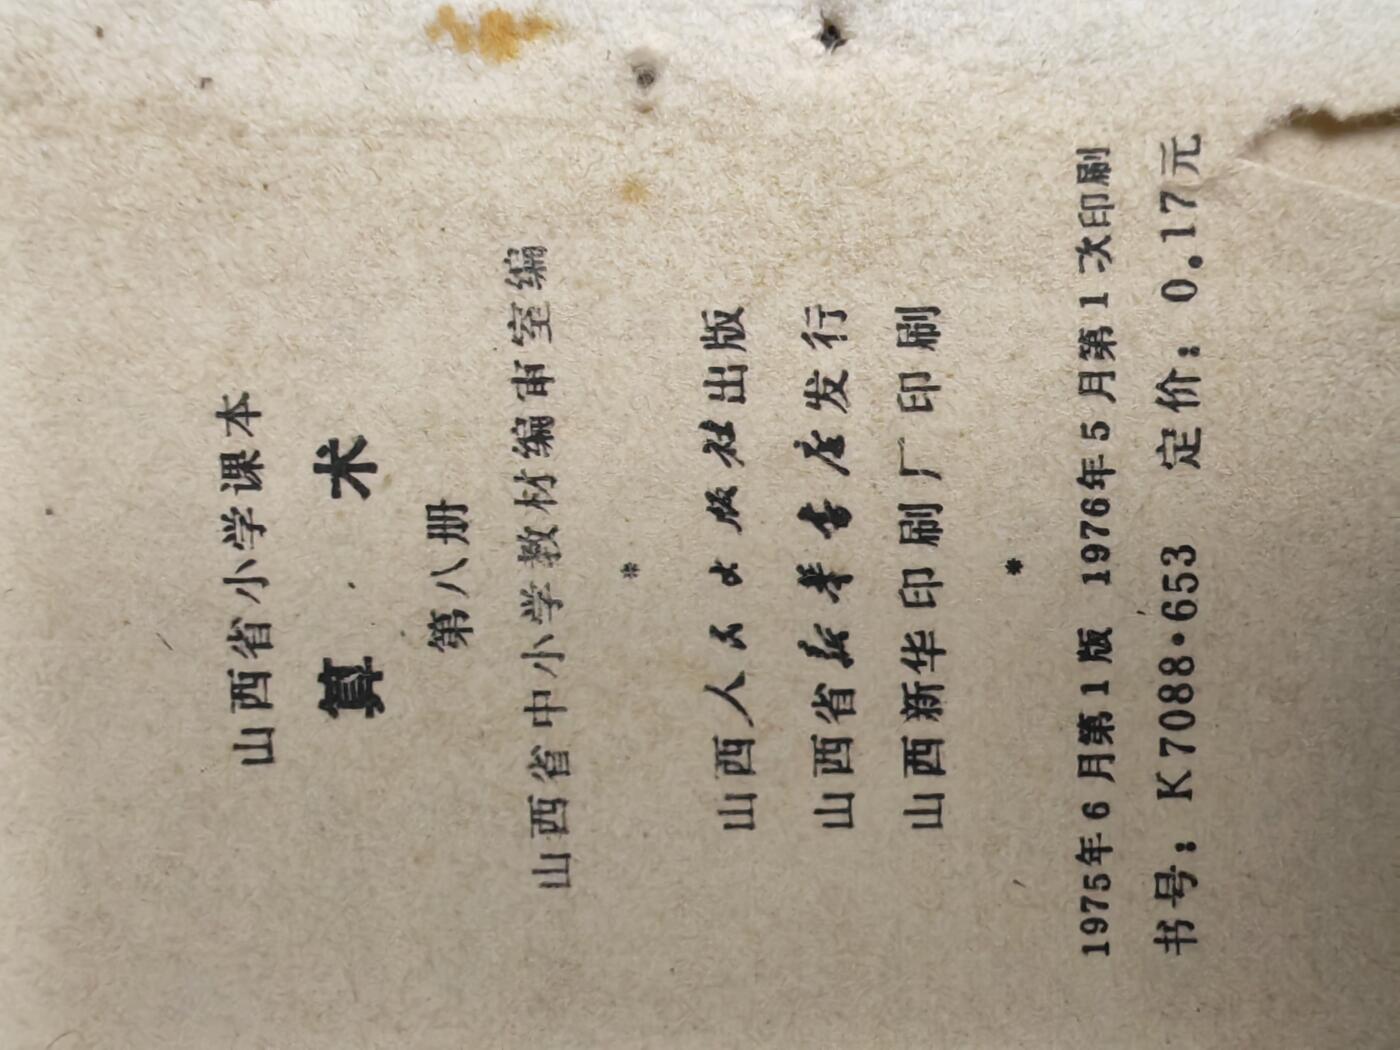 山西省小学课本
算 术
第八册
山西省中小学教材编审室编
*
山西人民出版社出版
山西省新华书店发行
山西新华印刷厂印刷
*
1975年6月第1版 1976年5月第1次印刷
书号：K7088·653 定价：0.17元